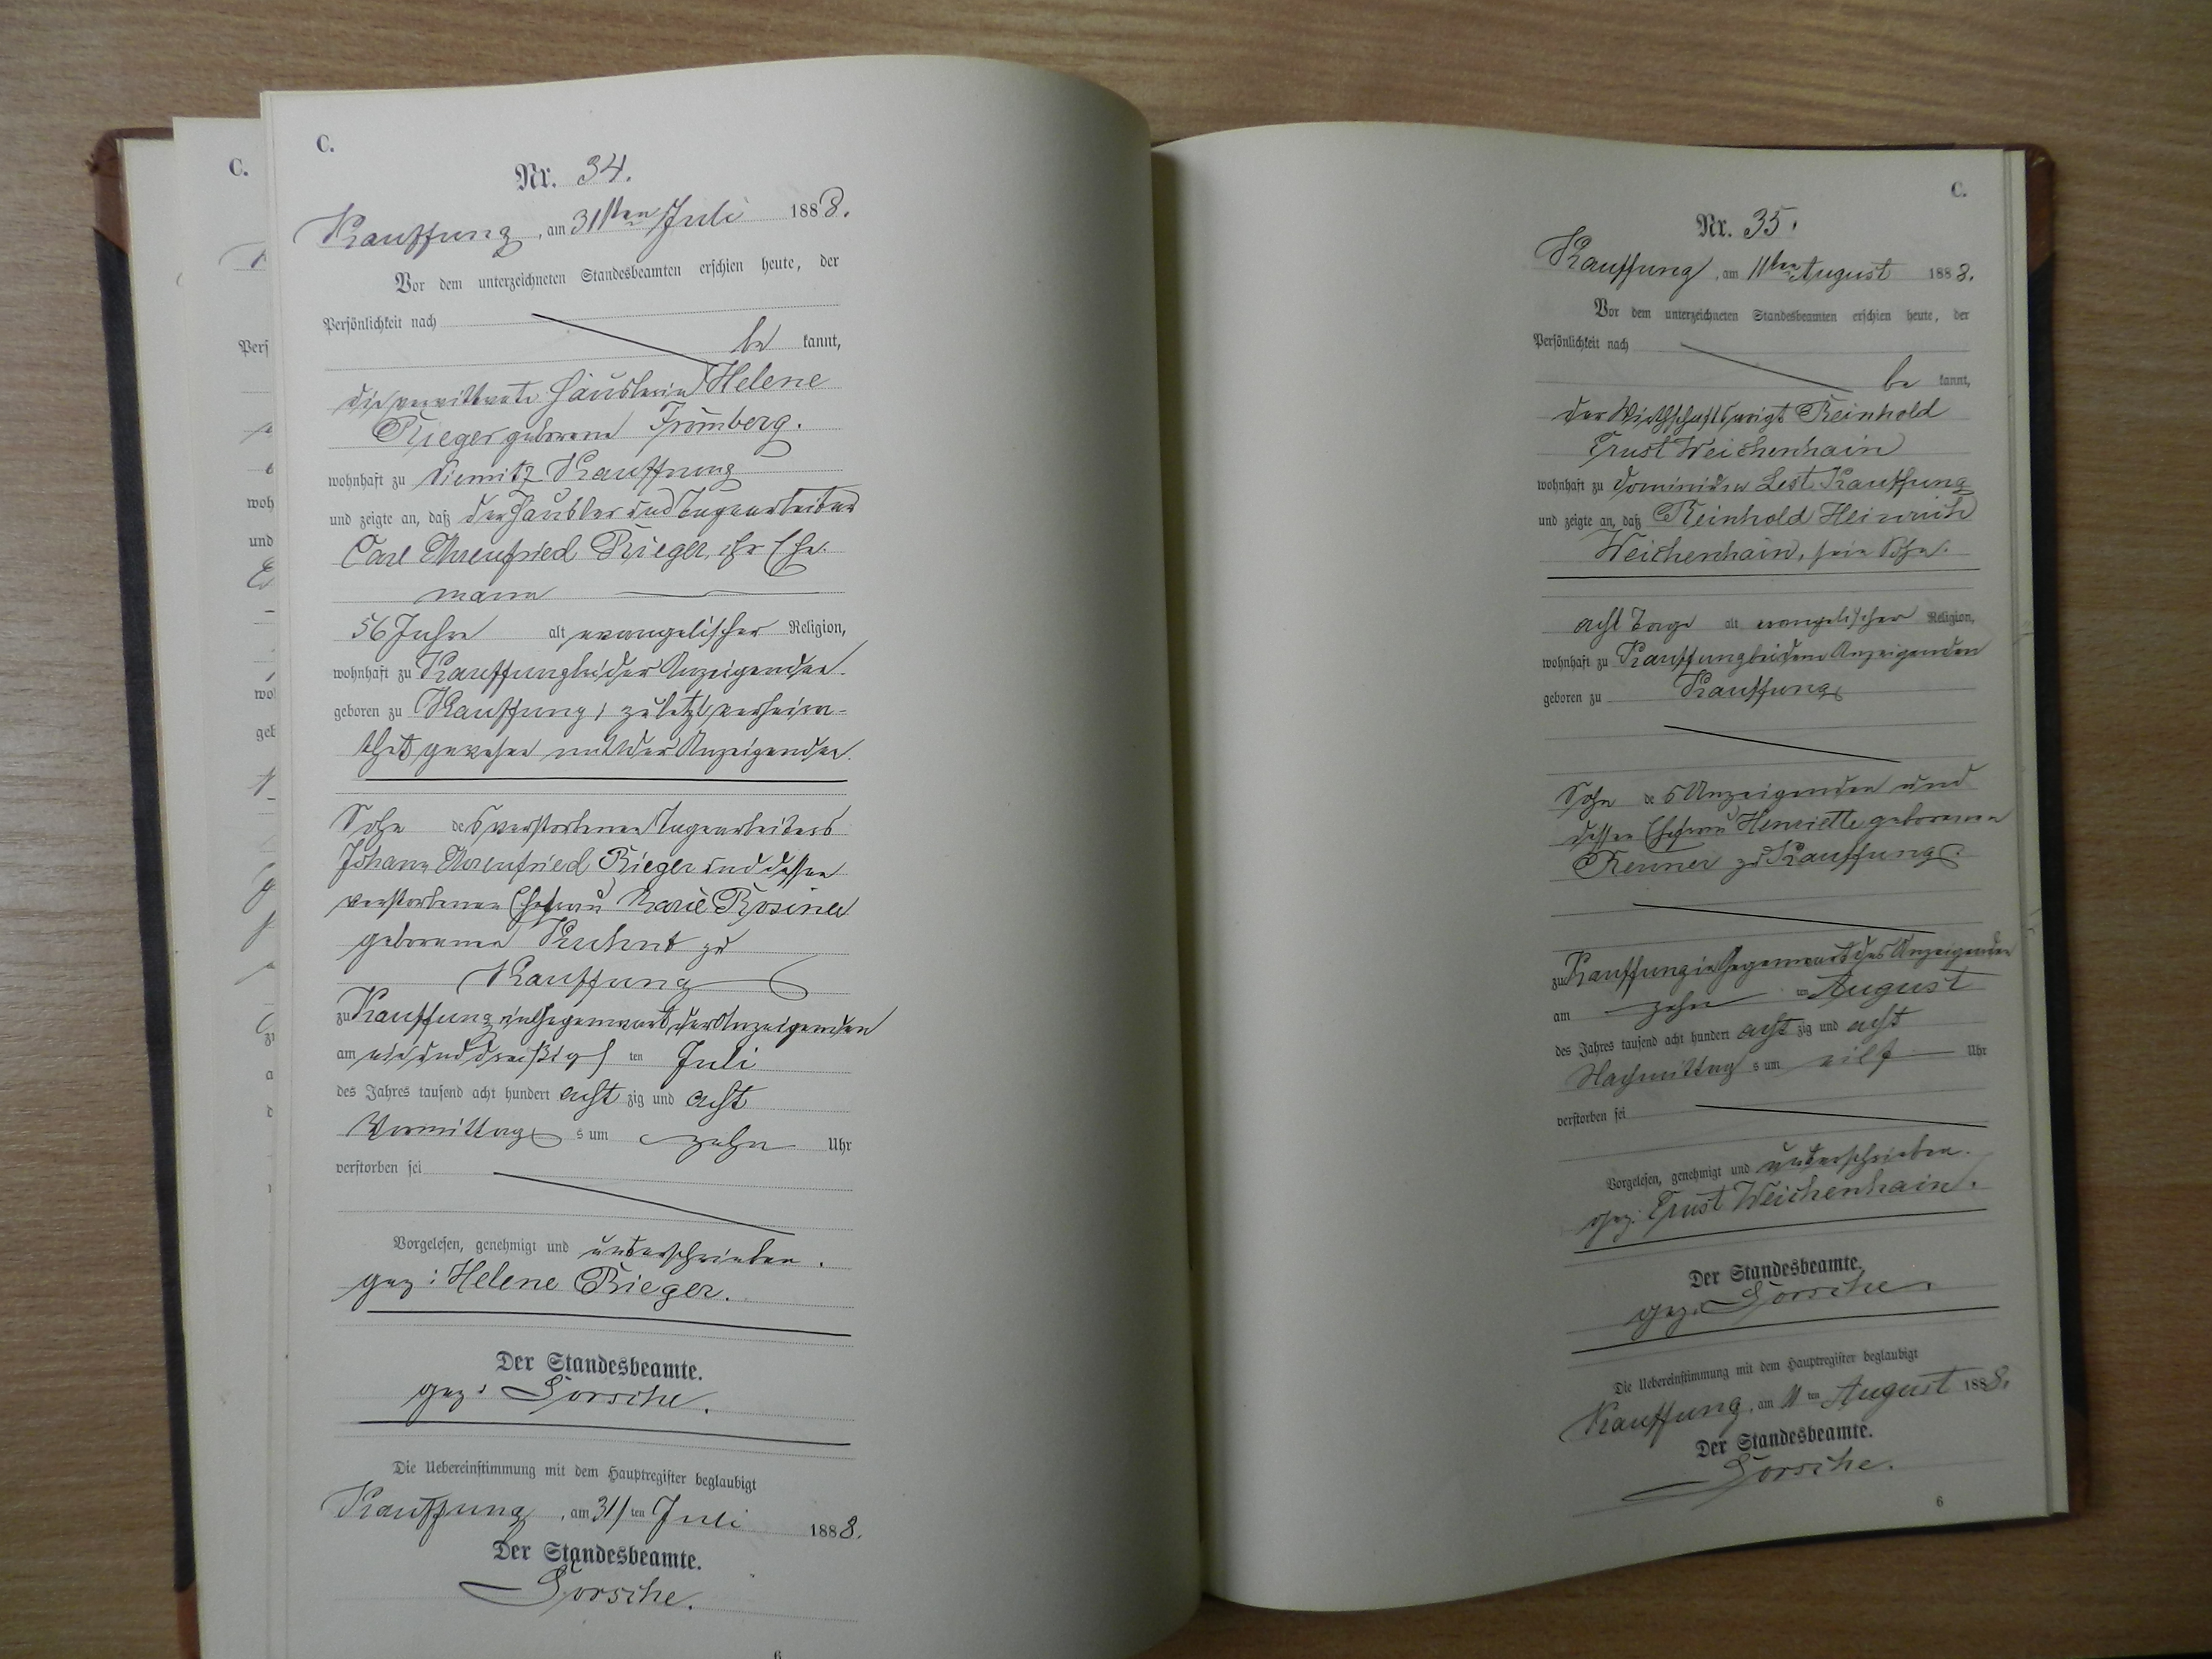 C.
Nr. 34.
Kauffung, am 31ten Juli 1888.
Vor dem unterzeichneten Standesbeamten erschien heute, der
Persönlichkeit nach
be kannt,
die verwittwete Häuslerin Helene
Rieger geborene Fromberg.
wohnhaft zu Niemitz Kauffung
und zeigte an, daß der Häusler und Tagearbeiter
Carl Ehrenfried Rieger, ihr Ehe-
mann
56 Jahre alt evangelischer Religion,
wohnhaft zu Kauffung bei der Anzeigenden.
geboren zu Kauffung, zuletzt verheira-
thet gewesen mit der Anzeigenden.
Sohn des verstorbenen Tagearbeiters
Johann Ehrenfried Rieger und dessen
verstorbenen Ehefrau Marie Rosine
geborenen zu
Kauffung
zu Kauffung in Gegenwart der Anzeigenden
am ein und dreißig ten Juli
des Jahres tausend acht hundert acht zig und acht
Vormittag s um zehn Uhr
verstorben sei
Vorgelesen, genehmigt und unterschrieben.
gez: Helene Rieger.
Der Standesbeamte.
gez: Sorsche.
Die Uebereinstimmung mit dem Hauptregister beglaubigt
Kauffung, am 31 ten Juli 1888.
Der Standesbeamte.
Sorsche.
6
C.
Nr. 35.
Kauffung, am 11ten August 1888.
Vor dem unterzeichneten Standesbeamten erschien heute, der
Persönlichkeit nach
be kannt,
der Wirthschaftsvoigt Reinhold
Ernst Weichenhain
wohnhaft zu Dominium Lest Kauffung
und zeigte an, daß Reinhold Heinrich
Weichenhain, sein Sohn.
acht Tage alt evangelischer Religion,
wohnhaft zu Kauffung bei dem Anzeigenden
geboren zu Kauffung
Sohn des Anzeigenden und
dessen Ehefrau Henriette geborenen
Renner zu Kauffung.
zu Kauffung in Gegenwart des Anzeigenden
am zehn ten August
des Jahres tausend acht hundert acht zig und acht
Nachmittag s um eilf Uhr
verstorben sei
Vorgelesen, genehmigt und unterschrieben.
gez: Ernst Weichenhain.
Der Standesbeamte.
gez: Sorsche.
Die Uebereinstimmung mit dem Hauptregister beglaubigt
Kauffung, am 11 ten August 1888.
Der Standesbeamte.
Sorsche.
6